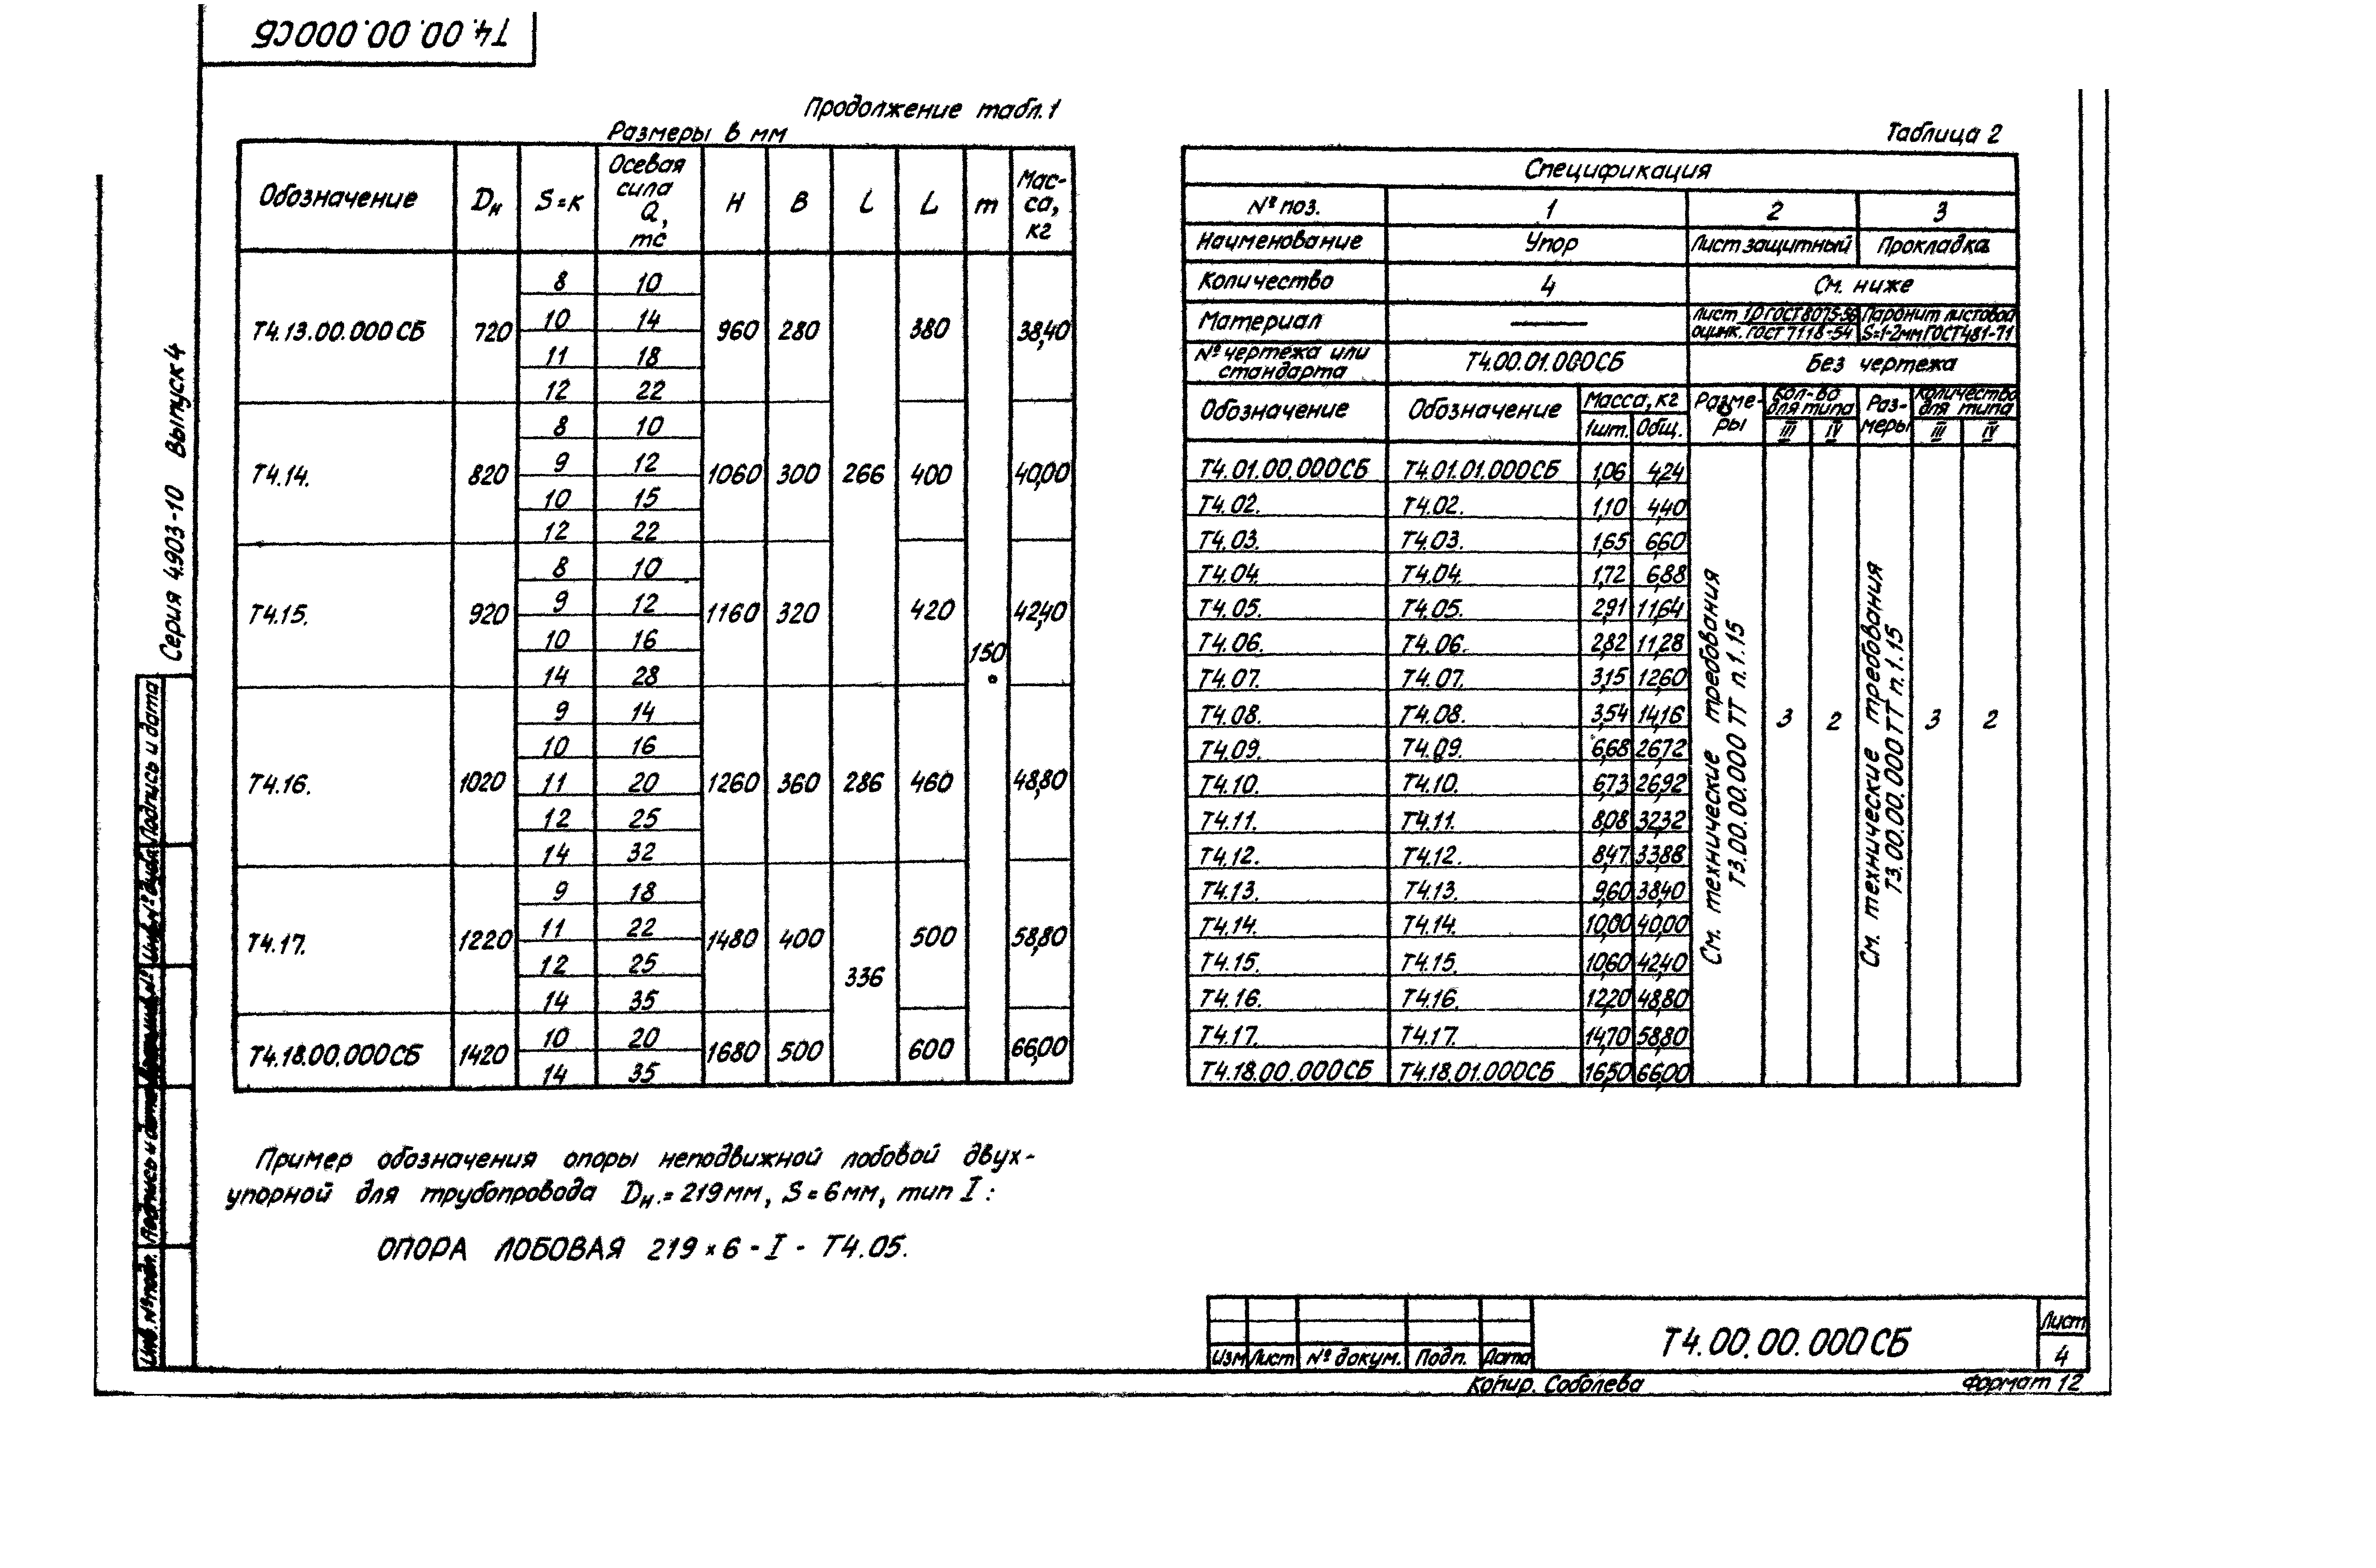 Т4.00.00.000СБ
Продолжение табл.1
Размеры в мм
Обозначение Dн S=к Осевая сила Q, тс H B l L m Масса, кг
Т4.13.00.000СБ 720 960 280 380 38,40
8 10
10 14
11 18
12 22
Т4.14. 820 1060 300 266 400 40,00
8 10
9 12
10 15
12 22
Т4.15. 920 1160 320 420 42,40
8 10
9 12
10 16
14 28
150
Т4.16. 1020 1260 360 286 460 48,80
9 14
10 16
11 20
12 25
14 32
Т4.17. 1220 1480 400 500 58,80
9 18
11 22
12 25
14 35
336
Т4.18.00.000СБ 1420 1680 500 600 66,00
10 20
14 35
Пример обозначения опоры неподвижной лобовой двух-
упорной для трубопровода Dн.=219мм, S=6мм, тип I:
ОПОРА ЛОБОВАЯ 219×6-I-Т4.05.
Таблица 2
Спецификация
№ поз. 1 2 3
Наименование Упор Лист защитный Прокладка
Количество 4 См. ниже
Материал — Лист 1,0 ГОСТ 8075-56 Паронит листовой
оцинк. ГОСТ 7118-54 S=1-2мм ГОСТ 481-71
№ чертежа или стандарта Т4.00.01.000СБ Без чертежа
Обозначение Обозначение Масса, кг Размеры Кол-во для типа Размеры Количество для типа
1шт. Общ. III IV III IV
Т4.01.00.000СБ Т4.01.01.000СБ 1,06 4,24
Т4.02. Т4.02. 1,10 4,40
Т4.03. Т4.03. 1,65 6,60
Т4.04. Т4.04. 1,72 6,88
Т4.05. Т4.05. 2,91 11,64
Т4.06. Т4.06. 2,82 11,28
Т4.07. Т4.07. 3,15 12,60
Т4.08. Т4.08. 3,54 14,16
Т4.09. Т4.09. 6,68 26,72
Т4.10. Т4.10. 6,73 26,92
Т4.11. Т4.11. 8,08 32,32
Т4.12. Т4.12. 8,47 33,88
Т4.13. Т4.13. 9,60 38,40
Т4.14. Т4.14. 10,00 40,00
Т4.15. Т4.15. 10,60 42,40
Т4.16. Т4.16. 12,20 48,80
Т4.17. Т4.17. 14,70 58,80
Т4.18.00.000СБ Т4.18.01.000СБ 16,50 66,00
См. технические требования
Т3.00.00.000 ТТ п.1.15
3 2
См. технические требования
Т3.00.00.000ТТ п.1.15
3 2
Серия 4.903-10 Выпуск 4
Подпись и дата
Инв.№ дубл.
Подпись и дата
Инв.№ подл.
Изм Лист № докум. Подп. Дата
Т4.00.00.000СБ
Лист
4
Копир. Соболева
Формат 12